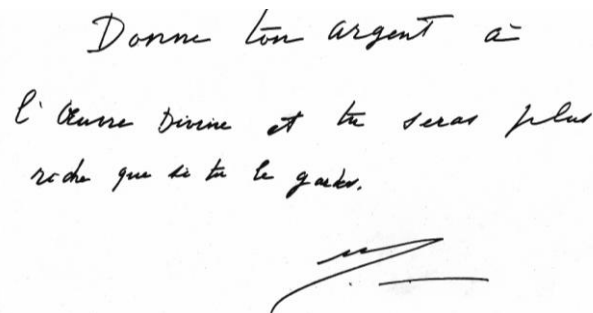 Donne ton argent à
l'Œuvre Divine et tu seras plus
riche que si tu le gardes.